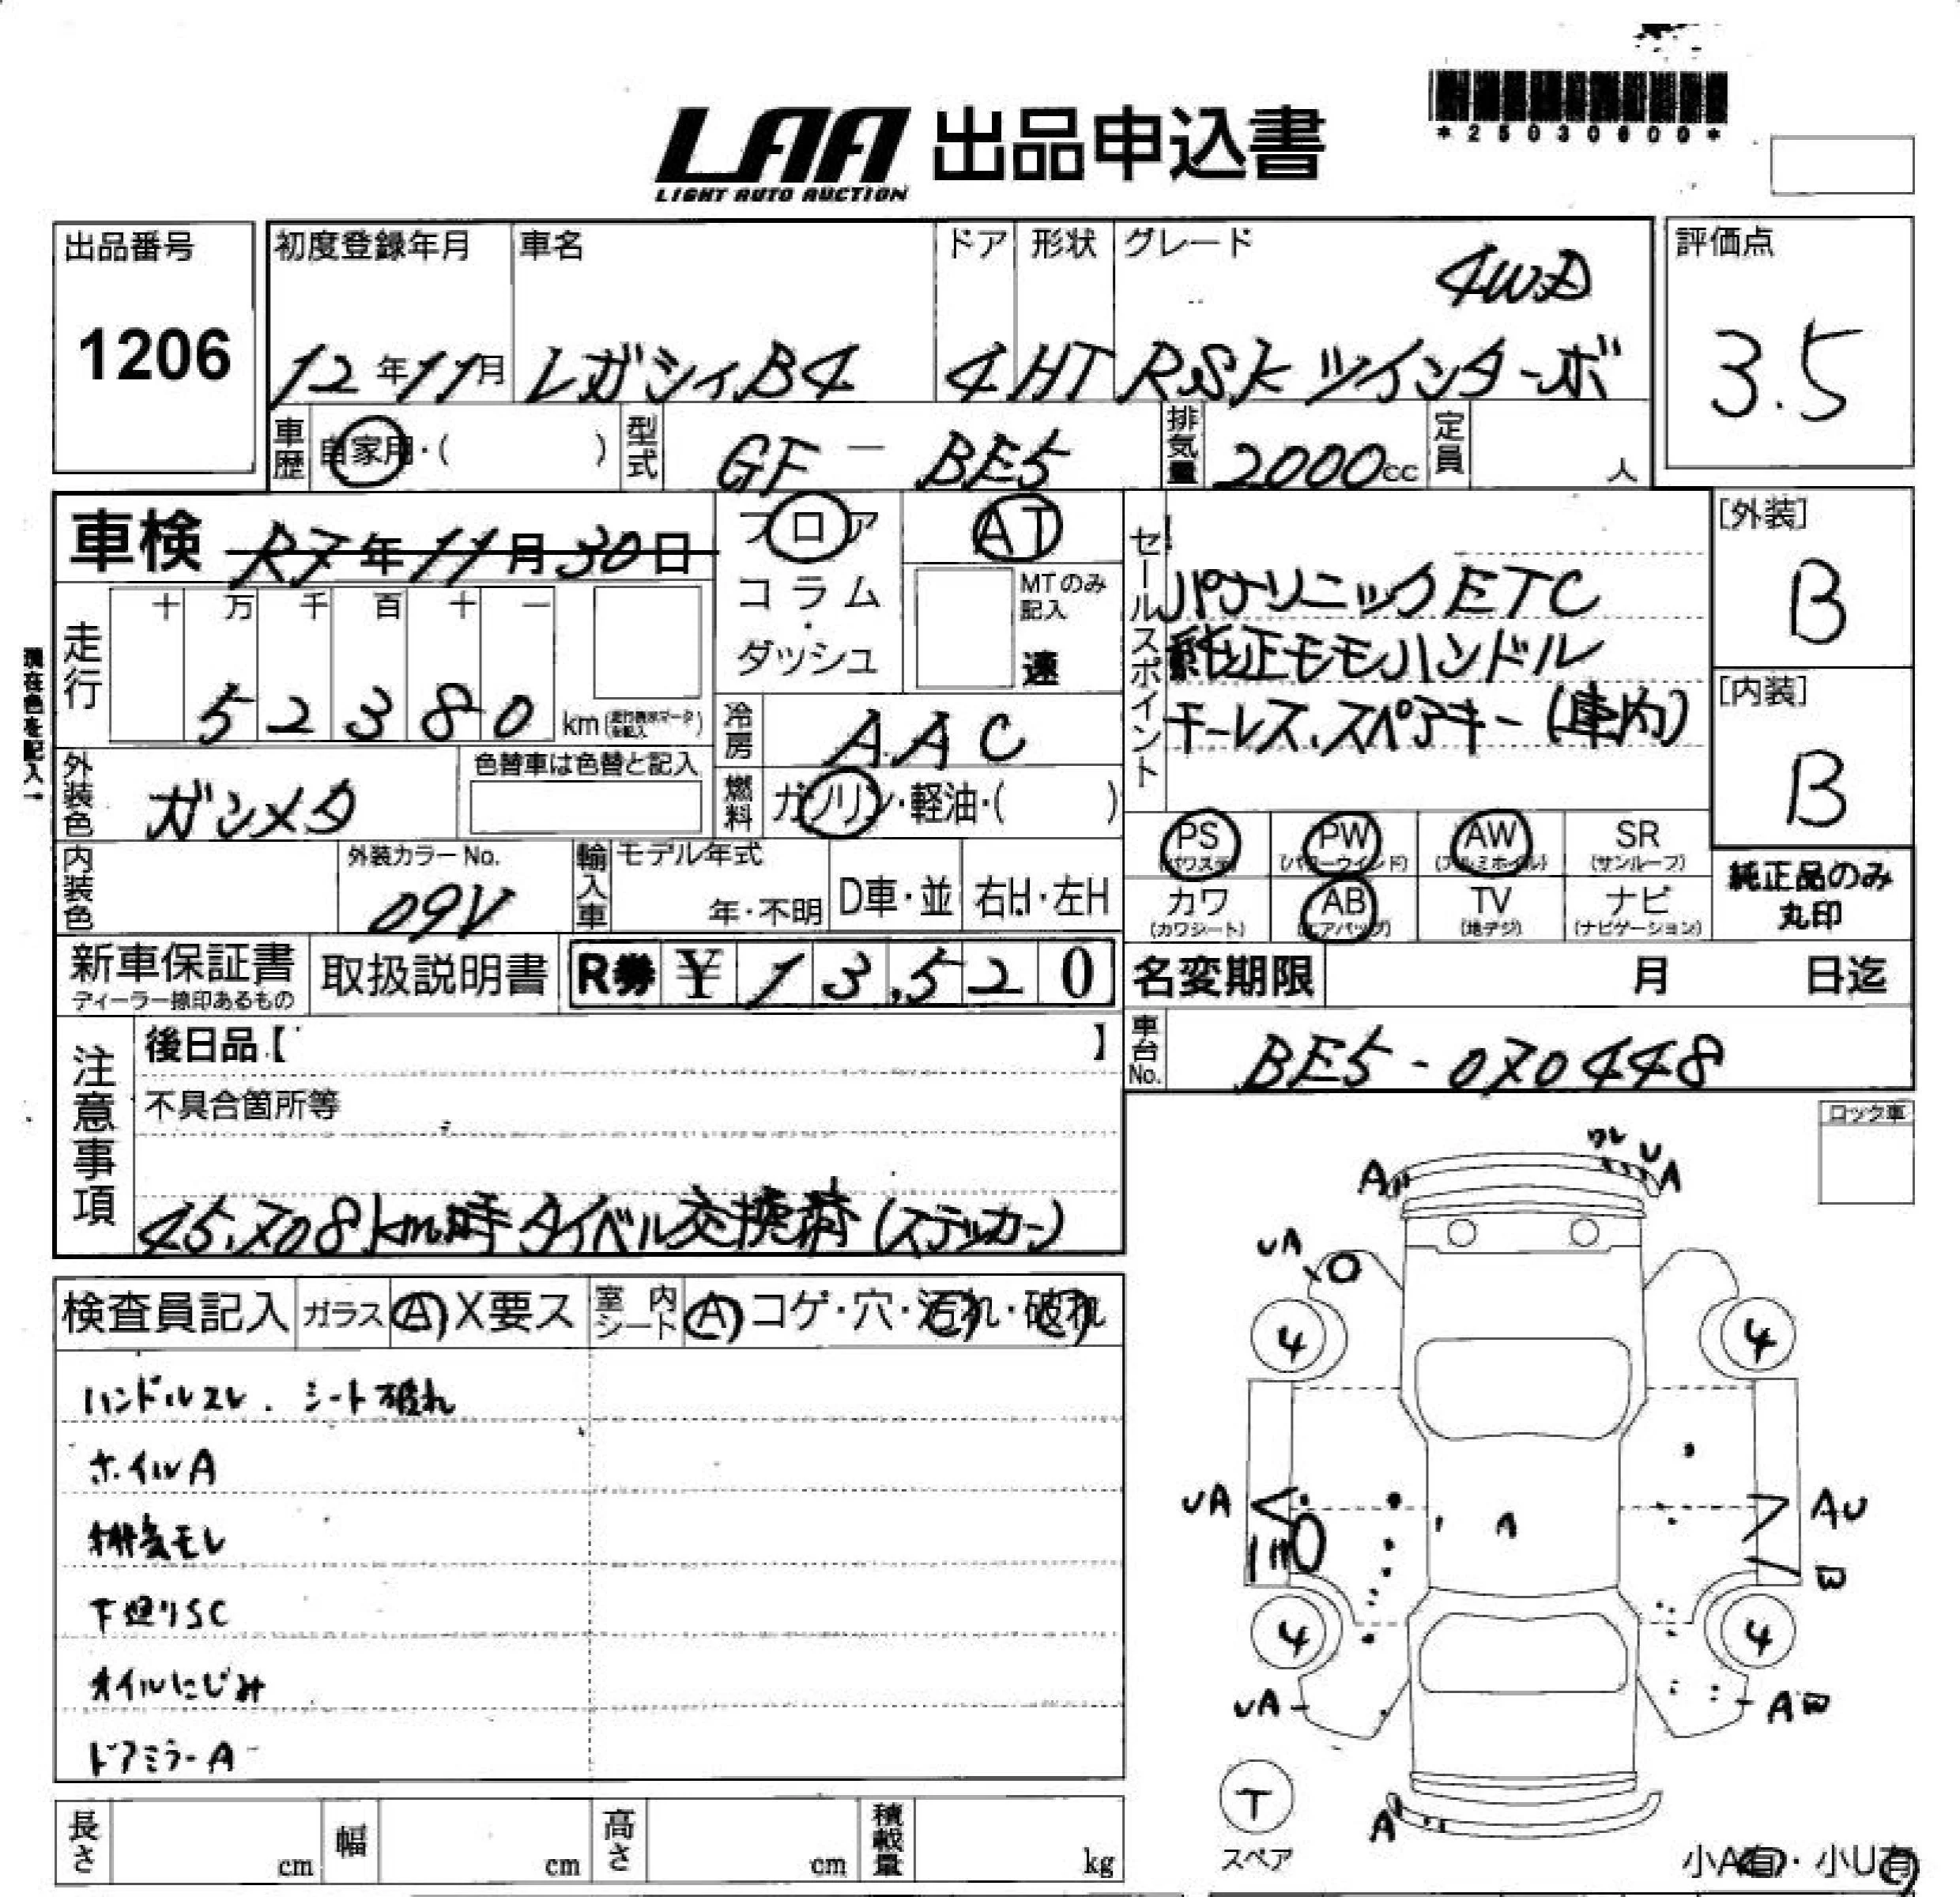 *25030600*
LAA 出品申込書
LIGHT AUTO AUCTION
出品番号
1206
初度登録年月
12年11月
車名
レガシィB4
ドア
4
形状
HT
グレード
4WD
RSK ツインターボ
評価点
3.5
車歴
自家用・( )
型式
GF - BE5
排気量
2000cc
定員
人
車検 R7年11月30日
フロア
コラム
・
ダッシュ
AT
MTのみ
記入
速
セールスポイント
パナソニックETC
純正モモハンドル
キーレス、スペアキー(車内)
[外装]
B
[内装]
B
現在色を記入→
走行
十 万 千 百 十 一
52380
km
冷房
AAC
燃料
ガソリン・軽油・( )
外装色
ガンメタ
色替車は色替と記入
内装色
外装カラーNo.
09V
輸入車
モデル年式
年・不明
D車・並
右H・左H
PS
(パワステ)
PW
(パワーウインド)
AW
(アルミホイル)
SR
(サンルーフ)
カワ
(カワシート)
AB
(エアバッグ)
TV
(地デジ)
ナビ
(ナビゲーション)
純正品のみ
丸印
新車保証書
ディーラー捺印あるもの
取扱説明書
R券 ¥ 13,520
名変期限 月 日迄
車台No.
BE5-070448
注意事項
後日品【 】
不具合箇所等
45,708km時タイベル交換済(ステッカー)
ロック車
検査員記入
ガラス
A X要ス
室内シート
A コゲ・穴・汚れ・破れ
ハンドルスレ. シート破れ
ホイルA
排気モレ
下廻りSC
オイルにじみ
ドアミラーA
ワレ U
A A
UA
4 4
UA
A
AU
B
4 4
UA
AB
T
スペア
A
小A有・小U有
長さ cm
幅 cm
高さ cm
積載量 kg